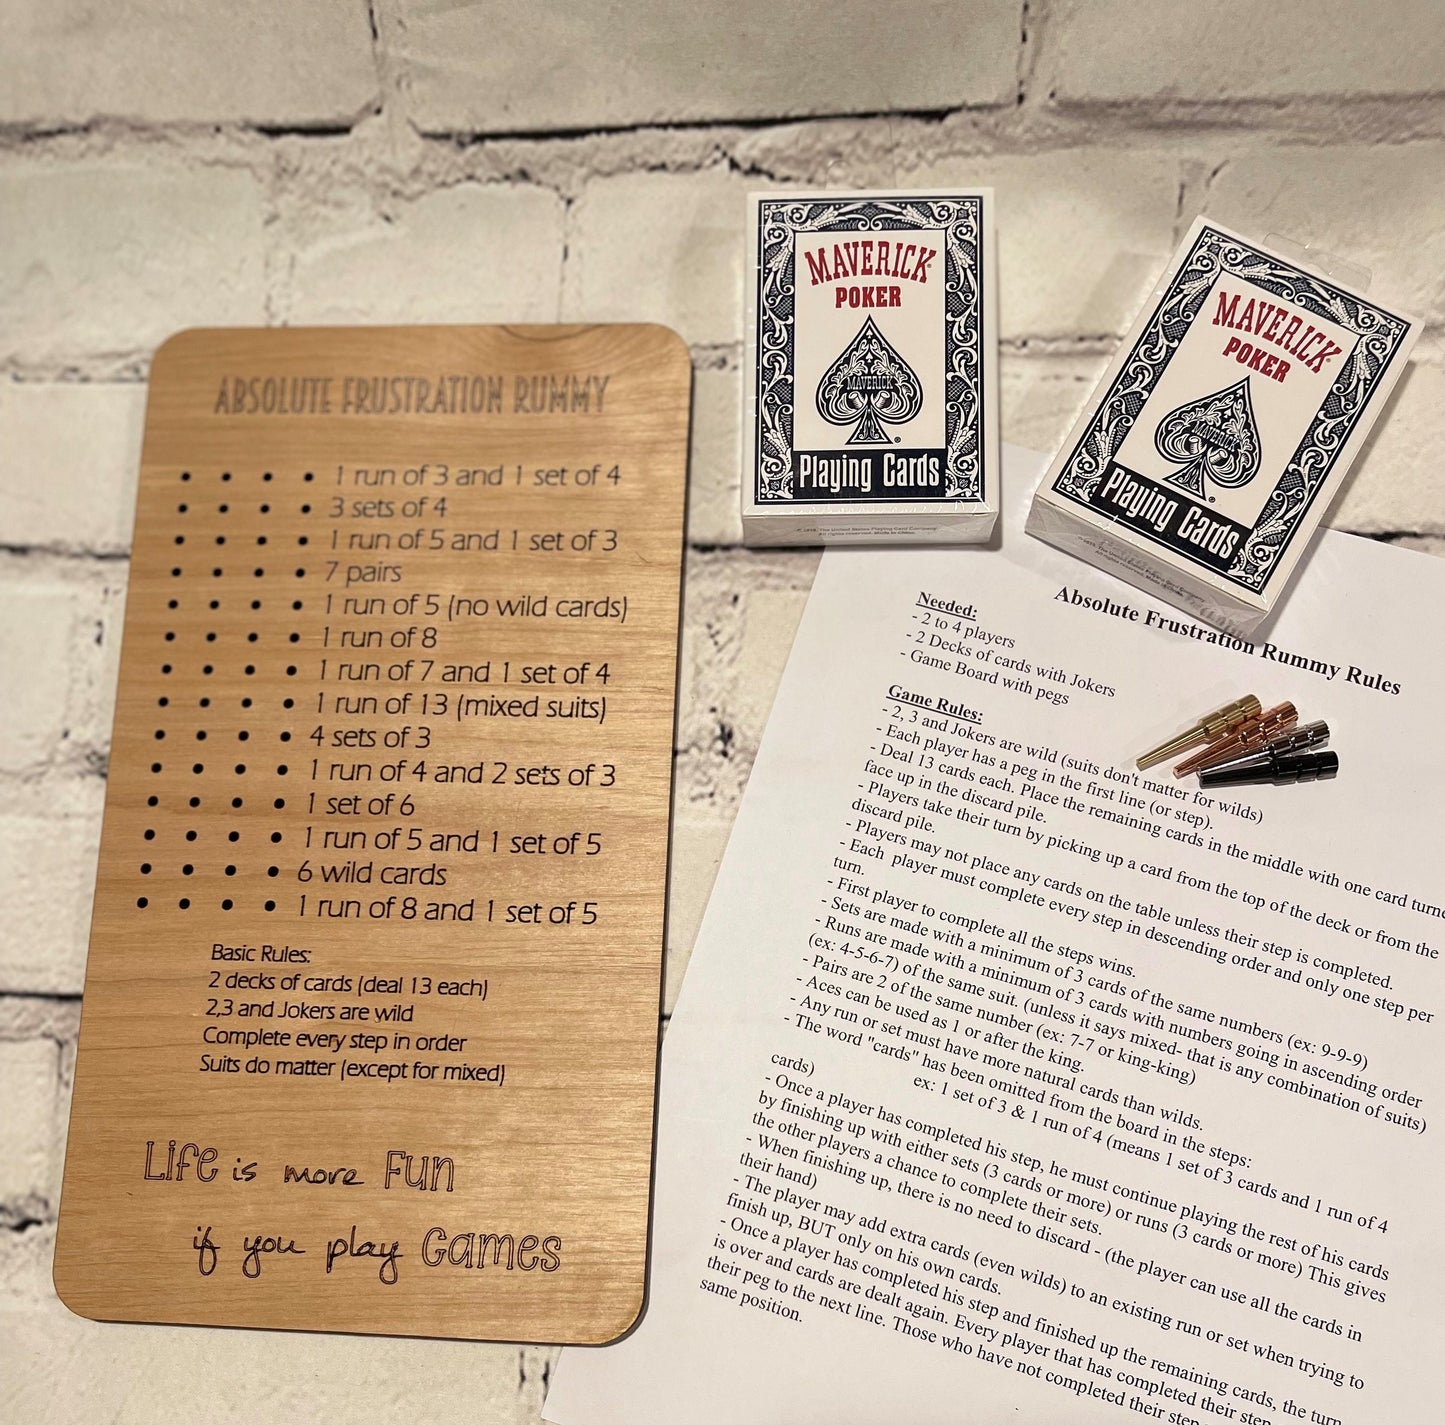 ABSOLUTE FRUSTRATION RUMMY
1 run of 3 and 1 set of 4
3 sets of 4
1 run of 5 and 1 set of 3
7 pairs
1 run of 5 (no wild cards)
1 run of 8
1 run of 7 and 1 set of 4
1 run of 13 (mixed suits)
4 sets of 3
1 run of 4 and 2 sets of 3
1 set of 6
1 run of 5 and 1 set of 5
6 wild cards
1 run of 8 and 1 set of 5
Basic Rules:
2 decks of cards (deal 13 each)
2,3 and Jokers are wild
Complete every step in order
Suits do matter (except for mixed)
Life is more Fun
if you play Games
MAVERICK
POKER
MAVERICK
Playing Cards
MAVERICK
POKER
MAVERICK
Playing Cards
Absolute Frustration Rummy Rules
Needed:
- 2 to 4 players
- 2 Decks of cards with Jokers
- Game Board with pegs
Game Rules:
- 2, 3 and Jokers are wild (suits don't matter for wilds)
- Each player has a peg in the first line (or step).
- Deal 13 cards each. Place the remaining cards in the middle with one card turne
face up in the discard pile.
- Players take their turn by picking up a card from the top of the deck or from the
discard pile.
- Players may not place any cards on the table unless their step is completed.
- Each player must complete every step in descending order and only one step per
turn.
- First player to complete all the steps wins.
- Sets are made with a minimum of 3 cards of the same numbers (ex: 9-9-9)
- Runs are made with a minimum of 3 cards with numbers going in ascending order
(ex: 4-5-6-7) of the same suit. (unless it says mixed- that is any combination of suits)
- Pairs are 2 of the same number (ex: 7-7 or king-king)
- Aces can be used as 1 or after the king.
- Any run or set must have more natural cards than wilds.
- The word "cards" has been omitted from the board in the steps:
ex: 1 set of 3 & 1 run of 4 (means 1 set of 3 cards and 1 run of 4
cards)
- Once a player has completed his step, he must continue playing the rest of his cards
by finishing up with either sets (3 cards or more) or runs (3 cards or more) This gives
the other players a chance to complete their sets.
- When finishing up, there is no need to discard - (the player can use all the cards in
their hand)
- The player may add extra cards (even wilds) to an existing run or set when trying to
finish up, BUT only on his own cards.
- Once a player has completed his step and finished up the remaining cards, the turn
is over and cards are dealt again. Every player that has completed their step
their peg to the next line. Those who have not completed their step
same position.